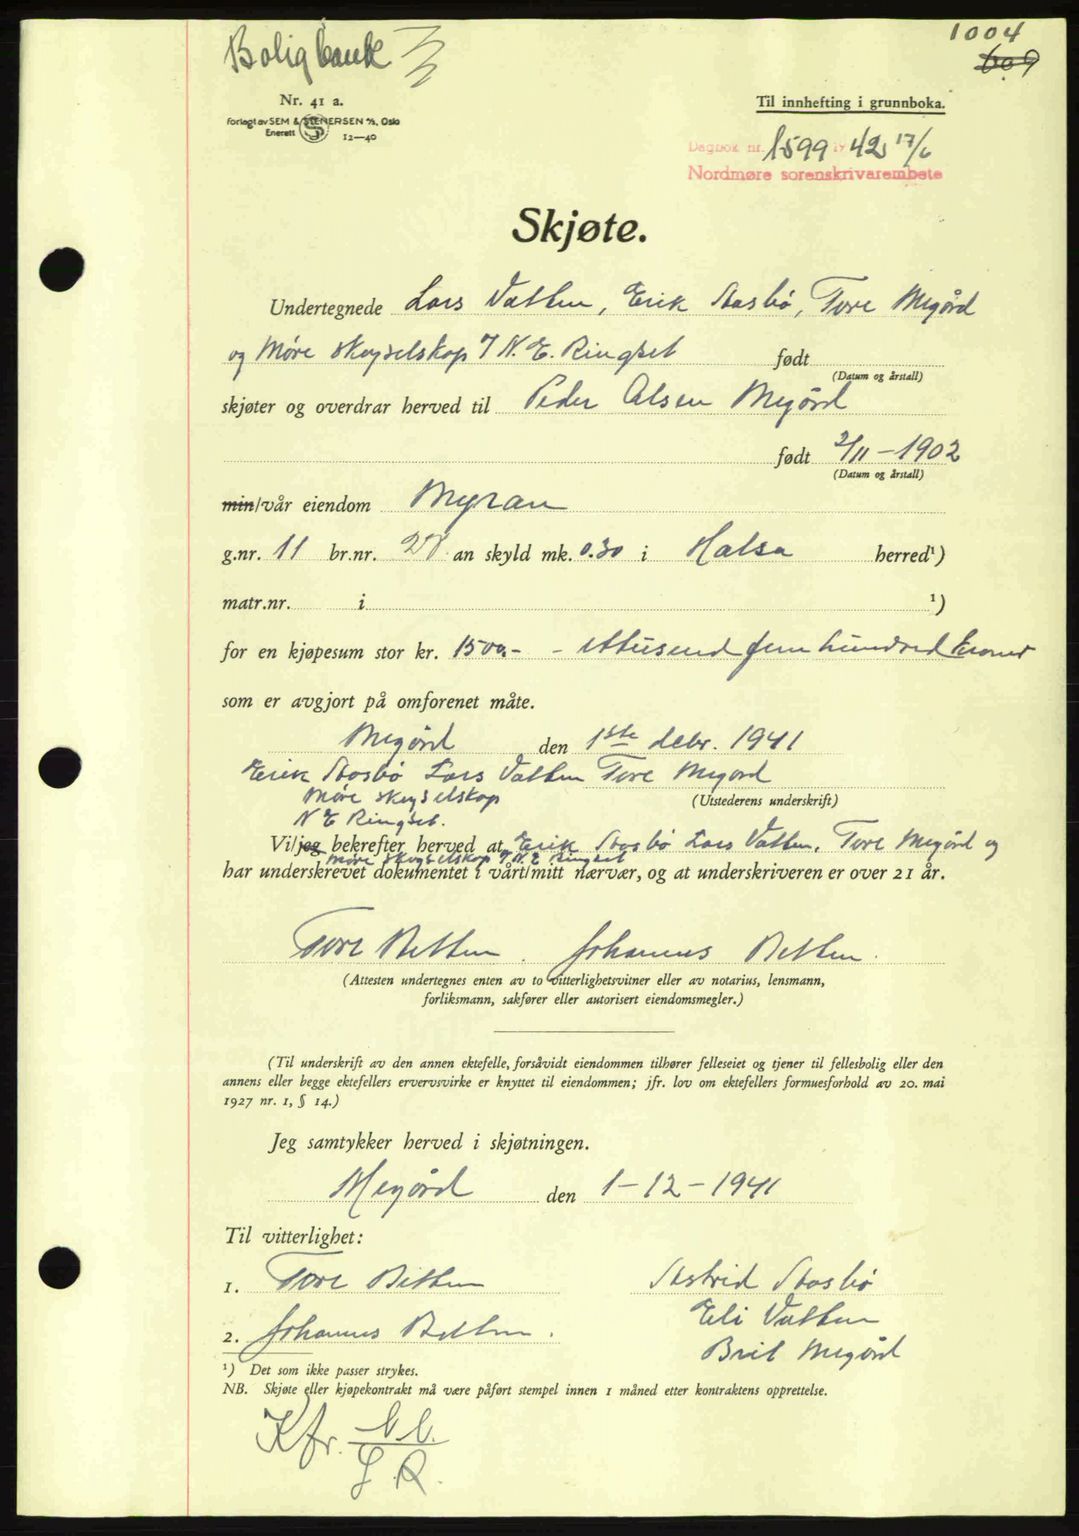 Boligbank
1004
609
Nr. 41 a.
Forlagt av SEM & STENERSEN A/S, Oslo
Enerett 12—40
Til innhefting i grunnboka.
Dagbok nr. 1599 1942 17/6
Nordmøre sorenskrivarembete
Skjøte.
Undertegnede Lars Vatten, Erik Stasbø, Tore Megård
og Møre Skogselskap v N. E. Ringset født
(Datum og årstall)
skjøter og overdrar herved til Peder Olsen Megård
født 2/11-1902
(Datum og årstall)
min/vår eiendom Myran
g.nr. 11 br.nr. an skyld mk. 0.30 i Halsa herred¹)
matr.nr. i ¹)
for en kjøpesum stor kr. 1500,- - ettusend fem hundred kroner
som er avgjort på omforenet måte.
Megård den 1ste debr. 1941
Erik Stasbø Lars Vatten Tore Megård
Møre Skogselskap (Utstederens underskrift)
N E Ringset.
Vi/jeg bekrefter herved at Erik Stasbø Lars Vatten, Tore Megård og
Møre Skogselskap v N. E Ringset
har underskrevet dokumentet i vårt/mitt nærvær, og at underskriveren er over 21 år.
Tore Betten. Johannes Betten.
(Attesten undertegnes enten av to vitterlighetsvitner eller av notarius, lensmann,
forliksmann, sakfører eller autorisert eiendomsmegler.)
(Til underskrift av den annen ektefelle, forsåvidt eiendommen tilhører felleseiet og tjener til fellesbolig eller den
annens eller begge ektefellers ervervsvirke er knyttet til eiendommen; jfr. lov om ektefellers formuesforhold av 20. mai
1927 nr. 1, § 14.)
Jeg samtykker herved i skjøtningen.
Megård den 1-12-1941
Til vitterlighet:
1. Tore Betten Astrid Stasbø
Eli Vatten
2. Johannes Betten.
Brit Megård
¹) Det som ikke passer strykes.
NB. Skjøte eller kjøpekontrakt må være påført stempel innen 1 måned etter kontraktens opprettelse.
Kfr.